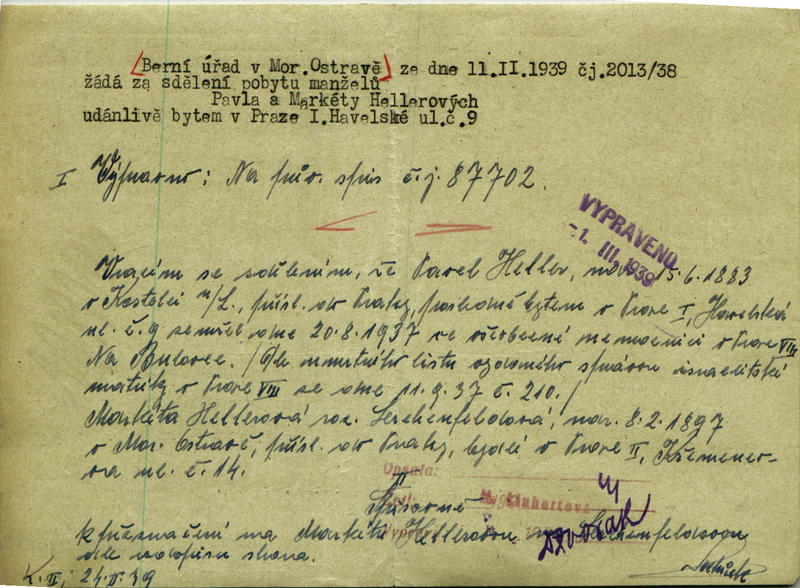 Berní úřad v Mor.Ostravě ze dne 11.II.1939 čj.2013/38
žádá za sdělení pobytu manželů
Pavla a Markéty Hellerových
udánlivě bytem v Praze I.Havelské ul.č.9
I Výpravno: Na pův. spis č.j. 87702.
VYPRAVENO
1. III. 1939
Vracím se sdělením, že Pavel Heller, nar. 15.6.1883
v Kostelci n/L., přísl. do Prahy, posledně bytem v Praze I, Havelská
ul. č. 9 zemřel dne 20.8.1937 ve všeobecné nemocnici v Praze VIII
Na Bulovce. /Dle úmrtního listu vydaného správou israelitské
matriky v Praze VIII ze dne 11.9.37 č. 210./
Markéta Hellerová roz. Lerchenfeldová, nar. 8.2.1897
v Mor. Ostravě, přísl. do Prahy, bydlí v Praze II, Křemenco-
va ul. č. 14.
Opsala:
Linhartová
II
k přeznačení na Markétu Hellerovou Lerchenfeldovou
dle vodopisu shora.
Dvořák
K. II; 24.II.39